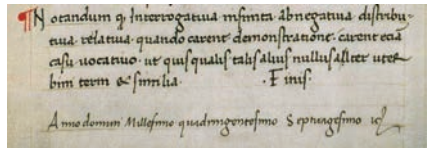 ¶ Notandum q Interrogatiua infinita abnegatiua distribu-
tiua relatiua quando carent demonstratione. carent eciā
casu uocatiuo. ut quis qualis talis alius nullus aliter uter
term & similia. Finis.
Anno domini Millesimo quadringentesimo Septuagesimo